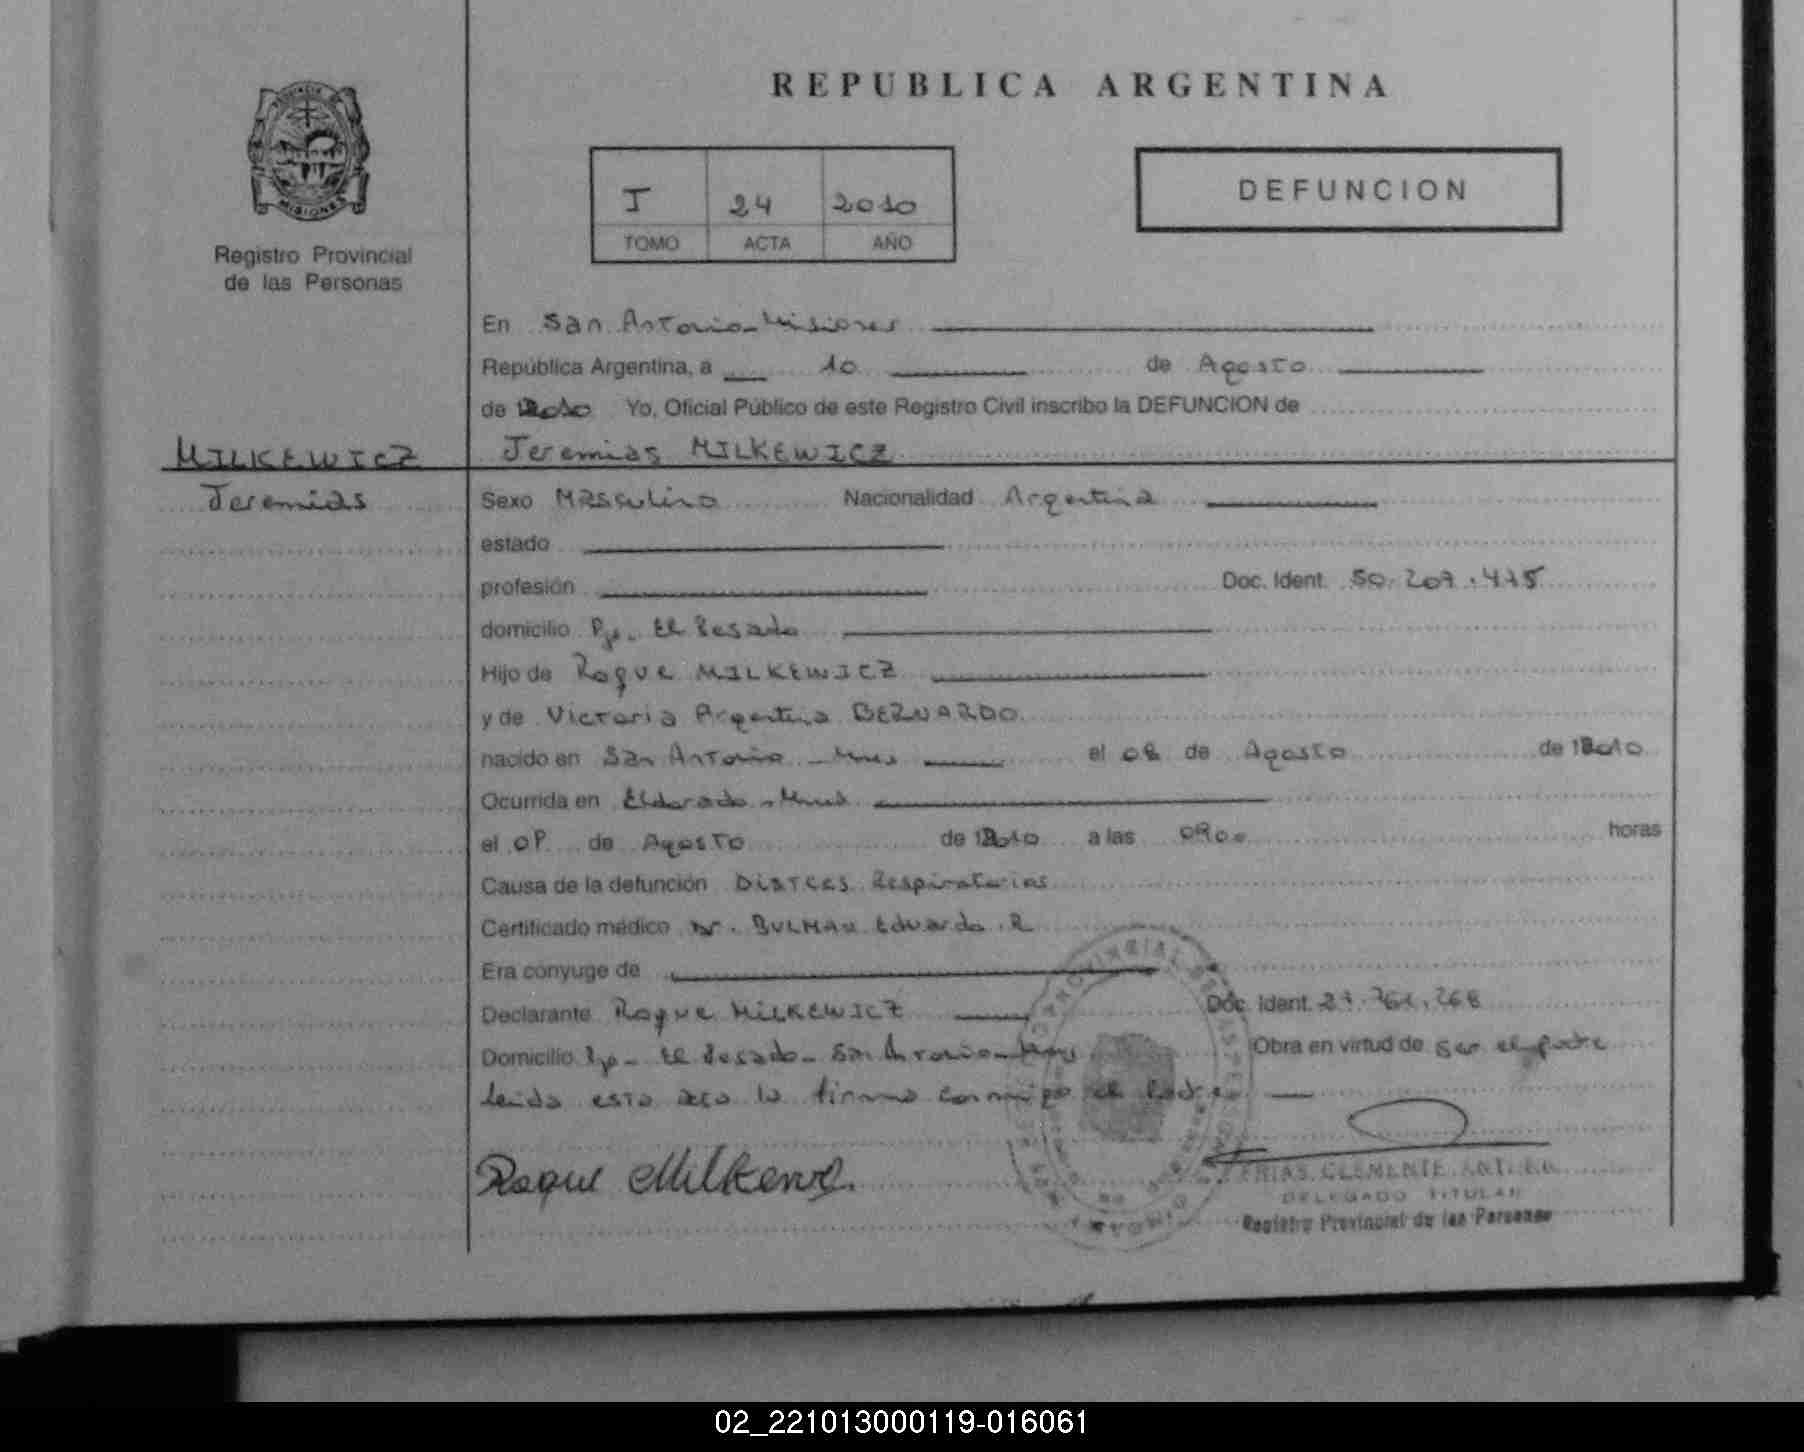 REPUBLICA ARGENTINA
PROVINCIA DE
MISIONES
Registro Provincial
de las Personas
I 24 2010
TOMO ACTA AÑO
DEFUNCION
En San Antonio-Misiones
República Argentina, a 10 de Agosto
de 2010 Yo, Oficial Público de este Registro Civil inscribo la DEFUNCION de
MILKEWICZ Jeremias MILKEWICZ
Jeremias
Sexo Masculino Nacionalidad Argentina
estado
profesión Doc. Ident. 50.207.475
domicilio Pje. El Pesado
Hijo de Roque MILKEWICZ
y de Victoria Argentina BERNARDO
nacido en San Antonio - Mnes el 08 de Agosto de 2010
Ocurrida en Eldorado - Mnes
el 09 de Agosto de 2010 a las 0900 horas
Causa de la defunción Distres Respiratorios
Certificado médico Dr. BULMAN Eduardo R
Era conyuge de
Declarante Roque MILKEWICZ Doc. Ident. 27.761.268
Domicilio Pje - El Pesado - San Antonio - Mnes Obra en virtud de ser el padre
Leida esta acta la firma conmigo el Padre
Roque Milkewicz
FRIAS, CLEMENTE
DELEGADO TITULAR
Registro Provincial de las Personas
02_221013000119-016061